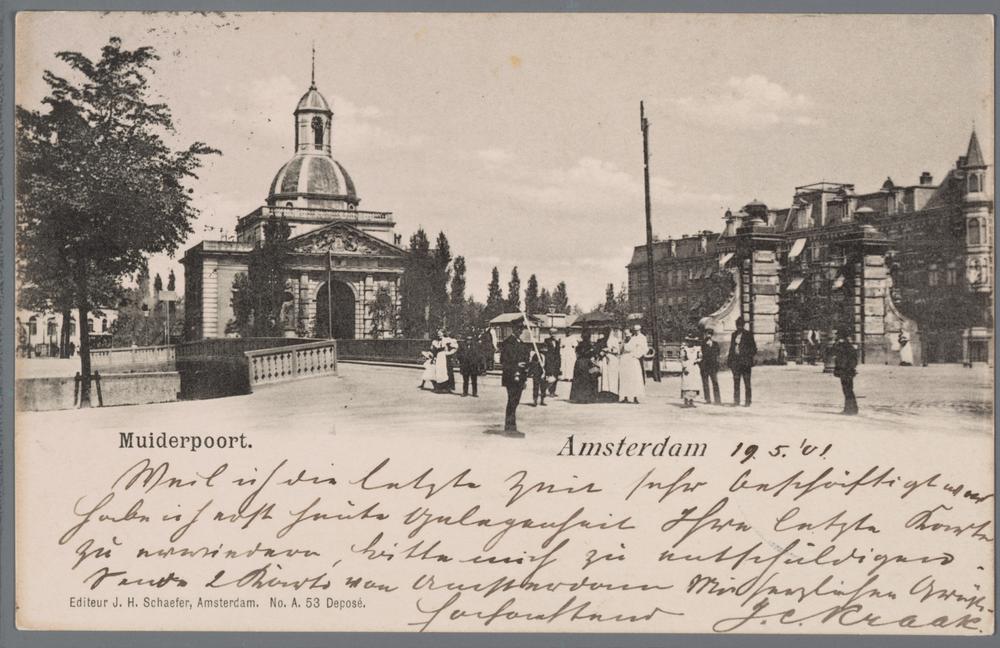 Muiderpoort.
Amsterdam 19.5.'01
Weil ich die letzte Zeit sehr beschäftigt war
habe ich erst heute Gelegenheit Ihre letzte Karte
zu erwiedern, bitte mich zu entschuldigen.
Sende 2 Karte von Amsterdam Mit herzlichen Grüße
Hochachtend J.C. Kraak.
Editeur J. H. Schaefer, Amsterdam. No. A. 53 Deposé.